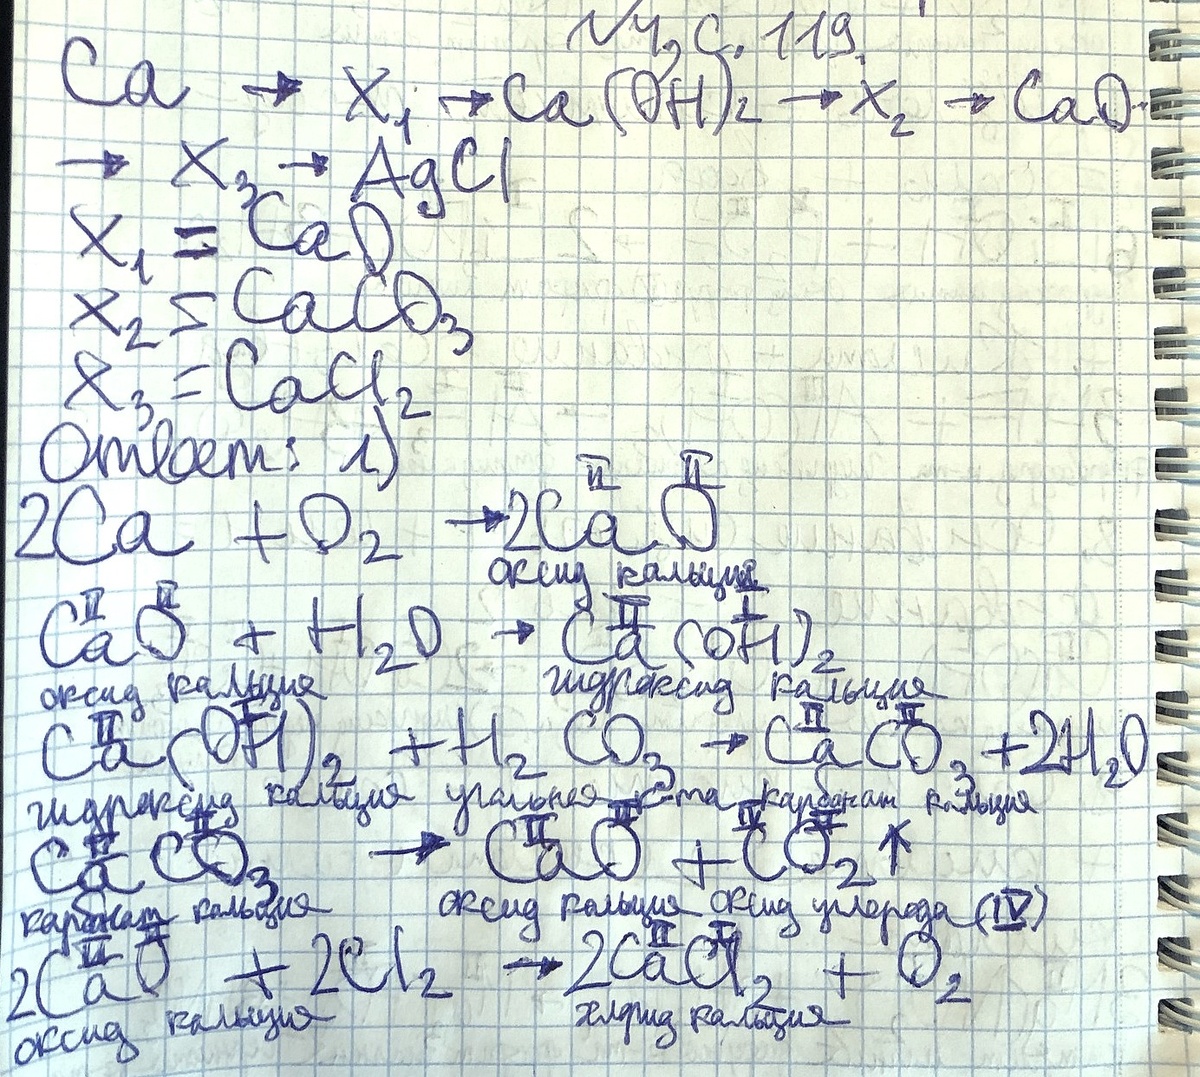 №4, с. 119.
Ca → X₁ → Ca(OH)₂ → X₂ → CaO
→ X₃ → AgCl
X₁ = CaO
X₂ = CaCO₃
X₃ = CaCl₂
Ответ: 1)
2Ca + O₂ → 2CaO
II II
оксид кальция
II II II I
CaO + H₂O → Ca(OH)₂
оксид кальция гидроксид кальция
II I II II
Ca(OH)₂ + H₂CO₃ → CaCO₃ + 2H₂O
гидроксид кальция угольная к-та карбонат кальция
II II II II IV II
CaCO₃ → CaO + CO₂ ↑
карбонат кальция оксид кальция оксид углерода (IV)
II II II I
2CaO + 2Cl₂ → 2CaCl₂ + O₂
оксид кальция хлорид кальция